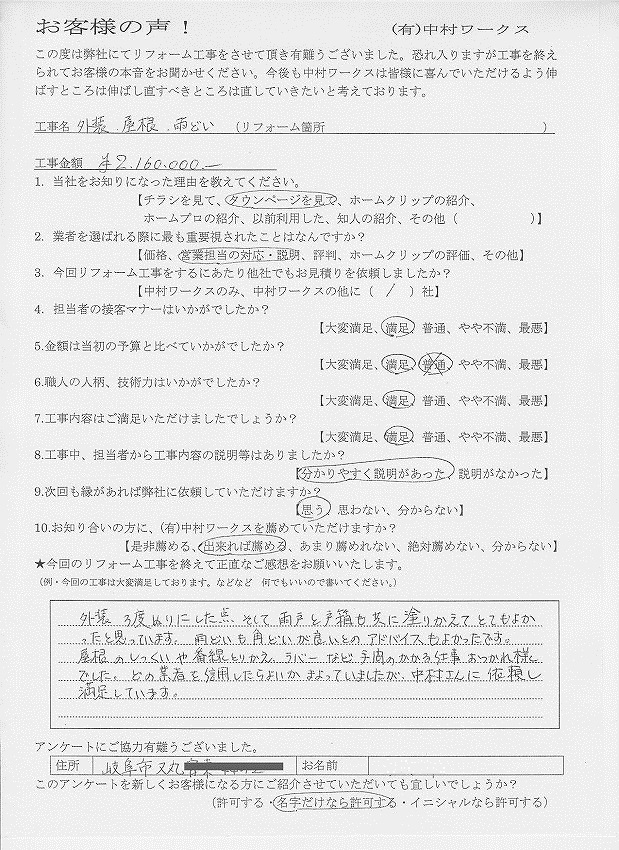 お客様の声！ (有)中村ワークス
この度は弊社にてリフォーム工事をさせて頂き有難うございました。恐れ入りますが工事を終え
られてお客様の本音をお聞かせください。今後も中村ワークスは皆様に喜んでいただけるよう伸
ばすところは伸ばし直すべきところは直していきたいと考えております。
工事名 外装 . 屋根 . 雨どい (リフォーム箇所 )
工事金額 ¥2.160.000.―
1. 当社をお知りになった理由を教えてください。
【チラシを見て、タウンページを見て、ホームクリップの紹介、
ホームプロの紹介、以前利用した、知人の紹介、その他（ ）】
2. 業者を選ばれる際に最も重要視されたことはなんですか？
【価格、営業担当の対応・説明、評判、ホームクリップの評価、その他】
3. 今回リフォーム工事をするにあたり他社でもお見積りを依頼しましたか？
【中村ワークスのみ、中村ワークスの他に（ / ）社】
4. 担当者の接客マナーはいかがでしたか？
【大変満足、満足、普通、やや不満、最悪】
5.金額は当初の予算と比べていかがでしたか？
【大変満足、満足、普通、やや不満、最悪】
6.職人の人柄、技術力はいかがでしたか？
【大変満足、満足、普通、やや不満、最悪】
7.工事内容はご満足いただけましたでしょうか？
【大変満足、満足、普通、やや不満、最悪】
8.工事中、担当者から工事内容の説明等はありましたか？
【分かりやすく説明があった、説明がなかった】
9.次回も縁があれば弊社に依頼していただけますか？
【思う、思わない、分からない】
10.お知り合いの方に、(有)中村ワークスを薦めていただけますか？
【是非薦める、出来れば薦める、あまり薦めれない、絶対薦めない、分からない】
★今回のリフォーム工事を終えて正直なご感想をお願いいたします。
（例・今回の工事は大変満足しております。などなど 何でもいいので書いてください。）
外装 3度ぬりにした点、そして雨戸と戸箱も共に塗りかえてとてもよか
ったと思っています。雨どいも角どいが良いとのアドバイスもよかったです。
屋根のしっくいや番線とりかえ、ラバーなど手間のかかる仕事おつかれ様
でした。どの業者を信用したらよいかまよっていましたが、中村さんに依頼し
満足しています。
アンケートにご協力有難うございました。
住所 岐阜市又丸 お名前
このアンケートを新しくお客様になる方にご紹介させていただいても宜しいでしょうか？
（許可する・名字だけなら許可する・イニシャルなら許可する）